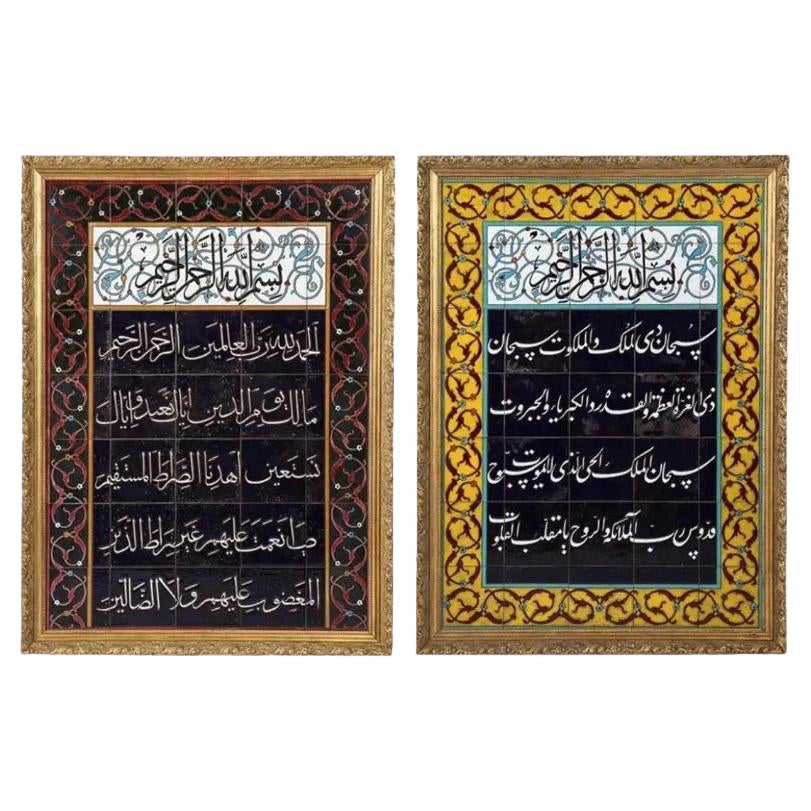 بسم الله الرحمن الرحيم
الحمد لله رب العالمين الرحمن الرحيم
مالك يوم الدين اياك نعبد و اياك
نستعين اهدنا الصراط المستقيم
صراط الذين انعمت عليهم غير
المغضوب عليهم ولا الضالين
بسم الله الرحمن الرحيم
سبحان ذی الملک والملکوت سبحان
ذی العزة والعظمة والقدرة والکبریاء والجبروت
سبحان الملک الحی الذی لایموت سبوح
قدوس رب الملائکة والروح یا مقلب القلوب